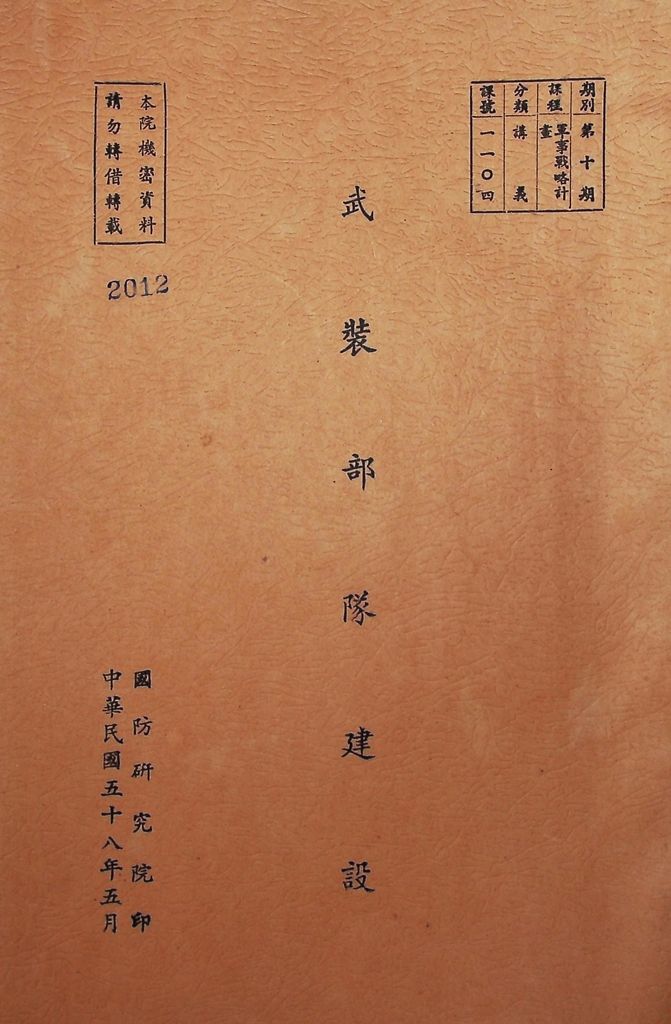 期別 第十期
課程 軍事戰略計畫
分類 講義
課號 一一〇四
武裝部隊建設
本院機密資料
請勿轉借轉載
2012
國防研究院印
中華民國五十八年五月